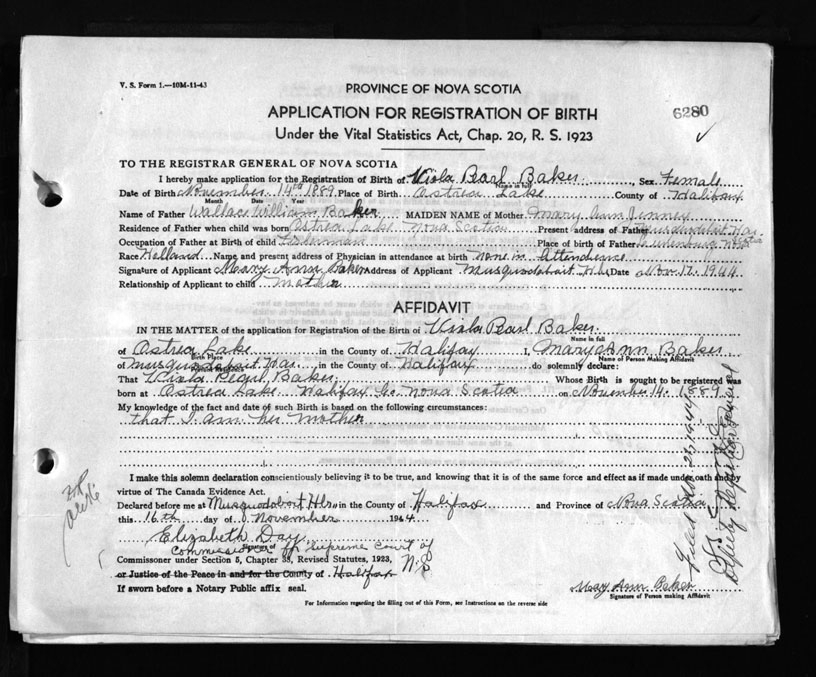 V. S. Form 1.—10M-11-43
PROVINCE OF NOVA SCOTIA
6280
APPLICATION FOR REGISTRATION OF BIRTH
Under the Vital Statistics Act, Chap. 20, R. S. 1923
TO THE REGISTRAR GENERAL OF NOVA SCOTIA
I hereby make application for the Registration of Birth of Viola Pearl Baker, Sex Female
Name in full
Date of Birth November 14th 1889 Place of Birth Ostrea Lake County of Halifax
Month Date Year
Name of Father Wallace William Baker MAIDEN NAME of Mother Mary Ann
Residence of Father when child was born Ostrea Lake Nova Scotia Present address of Father Musquodoboit Har
Occupation of Father at Birth of child Fisherman Place of birth of Father Lunenburg
Race Holland Name and present address of Physician in attendance at birth none in attendance
Signature of Applicant Mary Ann Baker Address of Applicant Musquodoboit Date Nov. 1944
Relationship of Applicant to child mother
AFFIDAVIT
IN THE MATTER of the application for Registration of the Birth of Viola Pearl Baker
Name in full
of Ostrea Lake in the County of Halifax I, Mary Ann Baker
Birth Place Name of Person Making Affidavit
of Musquodoboit Har in the County of Halifax do solemnly declare:
That Viola Pearl Baker Whose Birth is sought to be registered was
born at Ostrea Lake Halifax Co. Nova Scotia on November 14, 1889
My knowledge of the fact and date of such Birth is based on the following circumstances:
that I am her mother
I make this solemn declaration conscientiously believing it to be true, and knowing that it is of the same force and effect as if made under oath and by
virtue of The Canada Evidence Act.
Declared before me at Musquodoboit Hbr in the County of Halifax and Province of Nova Scotia
this 16th day of November 1944
Elizabeth Day
Commissioner of Supreme Court of
Commissoner under Section 5, Chapter 38, Revised Statutes, 1923, N.S
or Justice of the Peace in and for the County of Halifax
If sworn before a Notary Public affix seal.
Mary Ann Baker
Signature of Person making Affidavit
For Information regarding the filling out of this Form, see Instructions on the reverse side
Filed Nov 1944
Deputy Registrar General